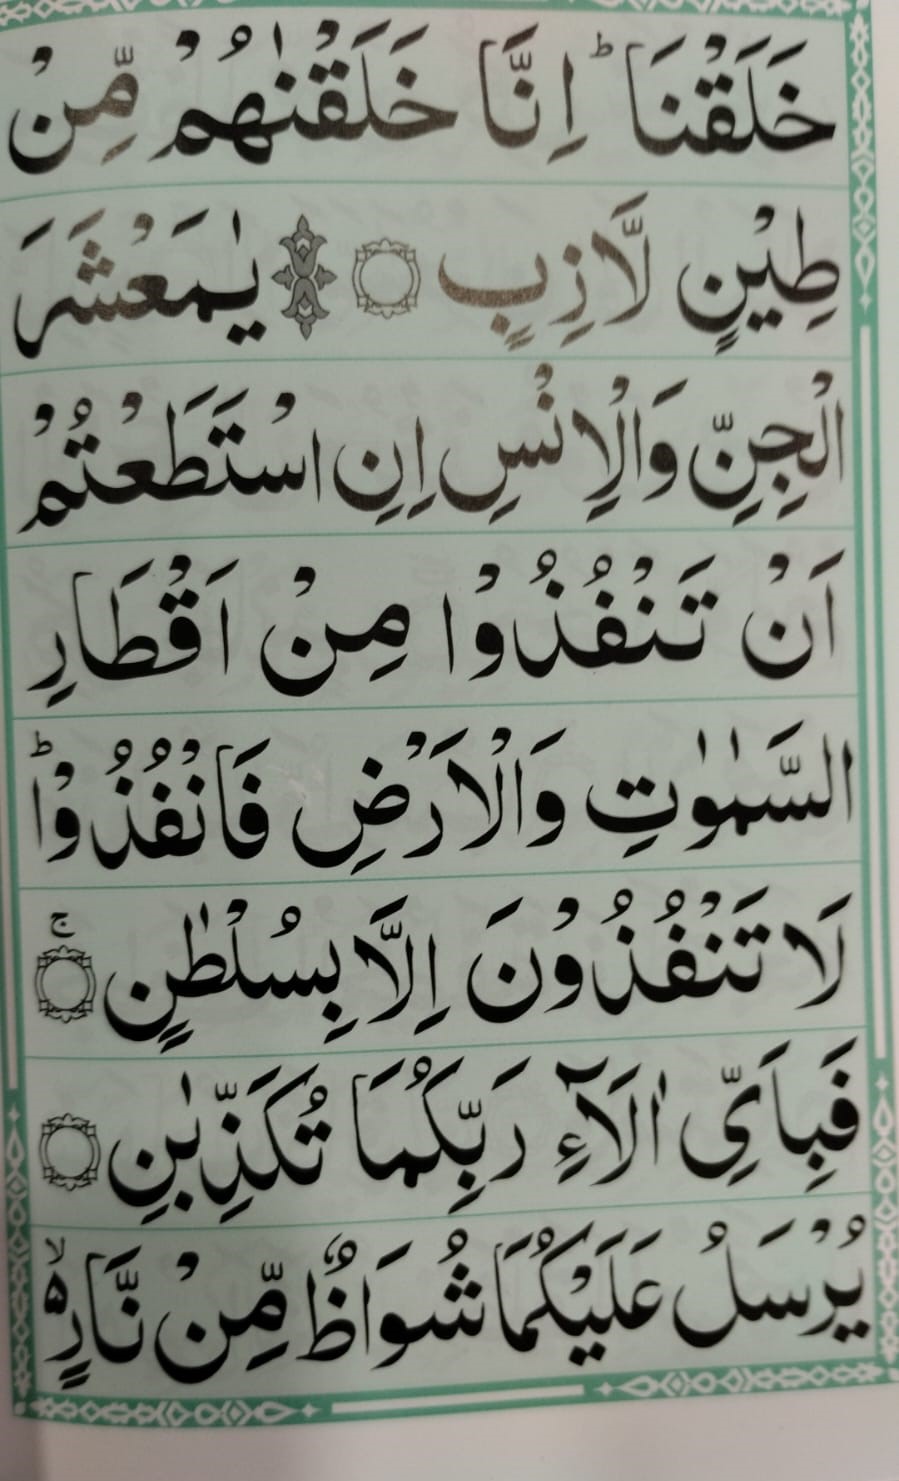 خَلَقْنَا ؕ اِنَّا خَلَقْنٰهُمْ مِّنْ
طِيْنٍ لَّازِبٍ ۝ يٰمَعْشَرَ
الْجِنِّ وَالْاِنْسِ اِنِ اسْتَطَعْتُمْ
اَنْ تَنْفُذُوْا مِنْ اَقْطَارِ
السَّمٰوٰتِ وَالْاَرْضِ فَانْفُذُوْا ؕ
لَا تَنْفُذُوْنَ اِلَّا بِسُلْطٰنٍ ۚ ۝
فَبِاَىِّ اٰلَآءِ رَبِّكُمَا تُكَذِّبٰنِ ۝
يُرْسَلُ عَلَيْكُمَا شُوَاظٌ مِّنْ نَّارٍ ۙ۬